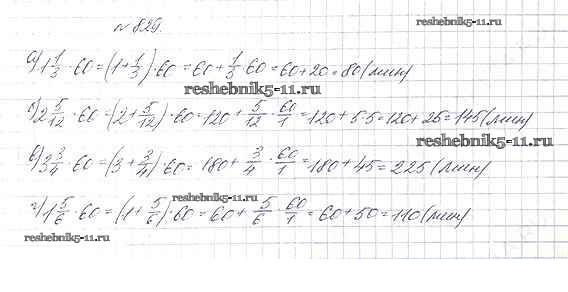 № 829.
reshebnik5-11.ru
а) 1 1/3 · 60 = (1 + 1/3) · 60 = 60 + 1/3 · 60 = 60 + 20 = 80 (мин)
reshebnik5-11.ru
б) 2 5/12 · 60 = (2 + 5/12) · 60 = 120 + 5/12 · 60/1 = 120 + 5·5 = 120 + 25 = 145 (мин)
reshebnik5-11.ru
в) 3 3/4 · 60 = (3 + 3/4) · 60 = 180 + 3/4 · 60/1 = 180 + 45 = 225 (мин)
reshebnik5-11.ru
г) 1 5/6 · 60 = (1 + 5/6) · 60 = 60 + 5/6 · 60/1 = 60 + 50 = 110 (мин)
reshebnik5-11.ru